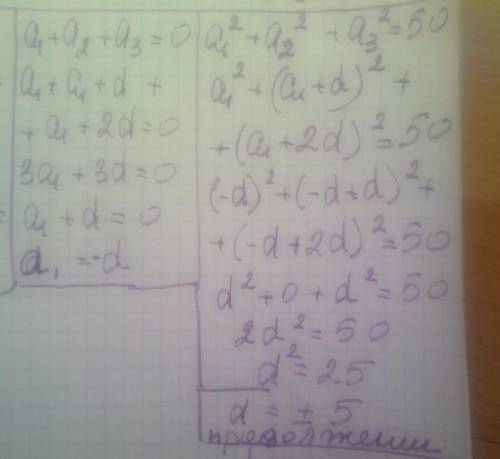 a₁ + a₂ + a₃ = 0
a₁ + a₁ + d +
+ a₁ + 2d = 0
3a₁ + 3d = 0
a₁ + d = 0
a₁ = -d
a₁² + a₂² + a₃² = 50
a₁² + (a₁ + d)² +
+ (a₁ + 2d)² = 50
(-d)² + (-d + d)² +
+ (-d + 2d)² = 50
d² + 0 + d² = 50
2d² = 50
d² = 25
d = ± 5
продолжении